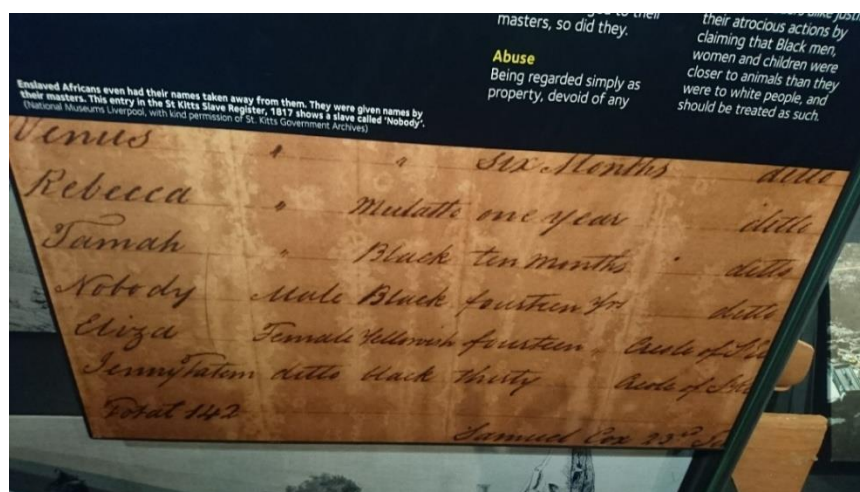 masters, so did they.
Abuse
Being regarded simply as
property, devoid of any
their atrocious actions by
claiming that Black men,
women and children were
closer to animals than they
were to white people, and
should be treated as such.
Enslaved Africans even had their names taken away from them. They were given names by
their masters. This entry in the St Kitts Slave Register, 1817 shows a slave called 'Nobody'.
(National Museums Liverpool, with kind permission of St. Kitts Government Archives)
Venus " " six Months ditto
Rebecca " Mulatto one year ditto
Tamah " Black ten months " ditto
Nobody Male Black fourteen yrs ditto
Eliza Female Yellowish fourteen Creole of
Jenny Tatem ditto black thirty Creole of
Total 142
Samuel Cox 23rd